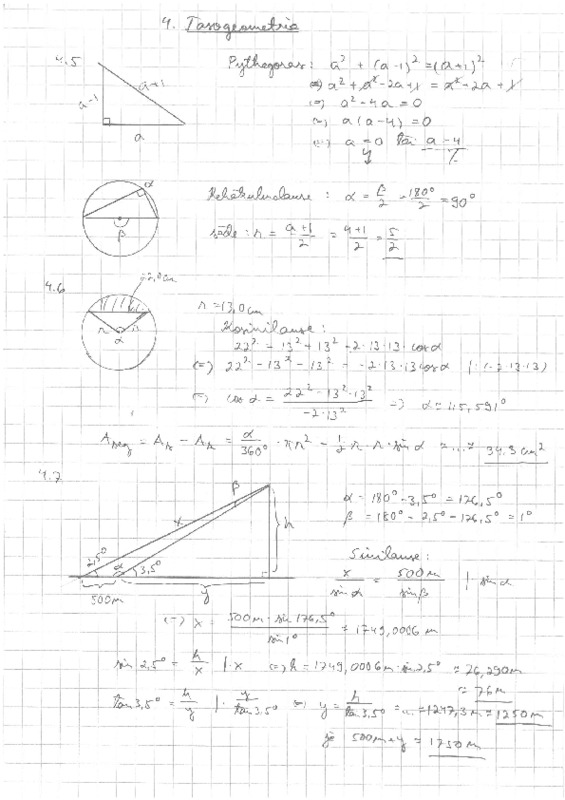 4. Tasogeometria
4.5
a+1
a-1
a
Pythagoras: a² + (a-1)² = (a+1)²
⇔ a² + a² - 2a + 1 = a² + 2a + 1
⇔ a² - 4a = 0
a(a-4) = 0
a = 0 tai a = 4
α
β
Kehäkulmalause: α = β/2 = 180°/2 = 90°
säde: r = (a+1)/2 = (4+1)/2 = 5/2
4.6
r
α
r = 13,0 cm
Kosinilause:
22² = 13² + 13² - 2·13·13·cos α
⇔ 22² - 13² - 13² = -2·13·13 cos α | :(-2·13·13)
cos α = (22² - 13² - 13²)/(-2·13²) ⇒ α = 115,591°
A_seg = A_s - A_k = α/360° · πr² - ½ r·r·sin α = ... = 34.3 cm²
4.7
β
x
h
2,5°
α
3,5°
500m
y
α = 180° - 3,5° = 176,5°
β = 180° - 2,5° - 176,5° = 1°
Sinilause:
x/sin α = 500m/sin β | · sin α
⇔ x = (500m · sin 176,5°)/sin 1° = 1749,0006 m
sin 2,5° = h/x | ·x ⇔ h = 1749,0006m · sin 2,5° = 76,290m
≈ 76m
tan 3,5° = h/y | · y/tan 3,5° ⇔ y = h/tan 3,5° = ... = 1247,3m ≈ 1250m
ja 500m + y = 1750m